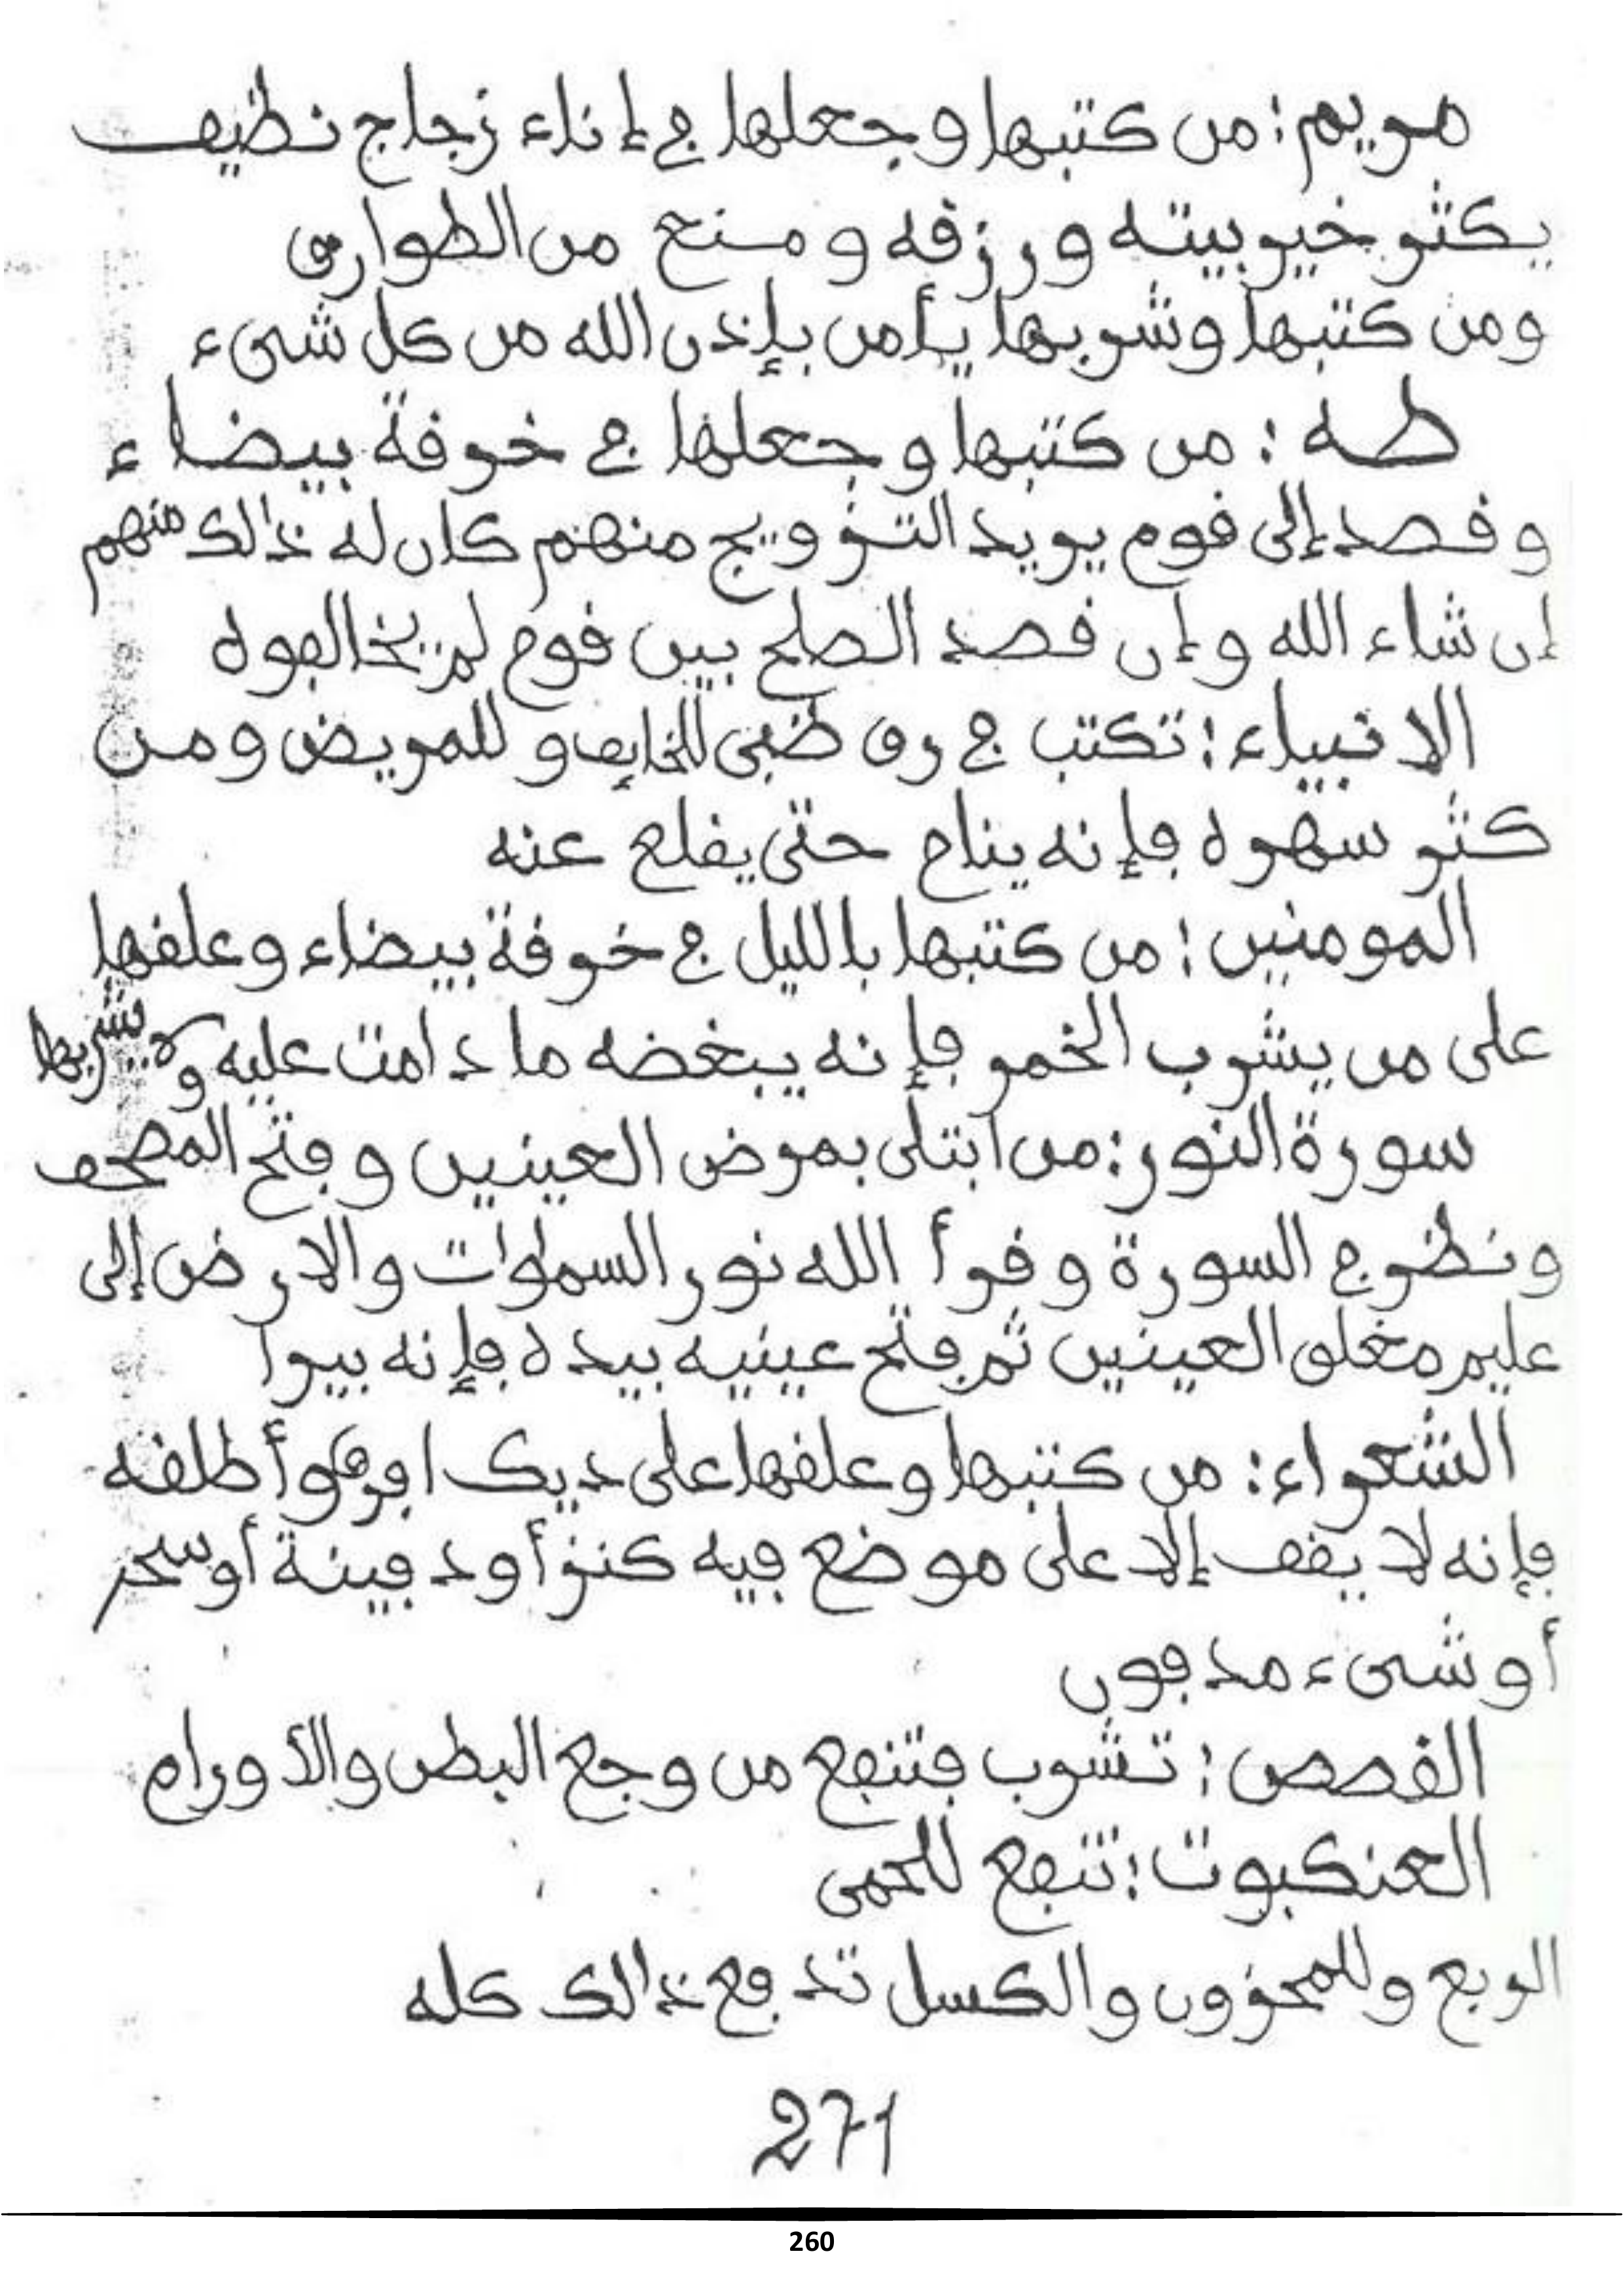 مريم: من كتبها وجعلها في إناء زجاج نظيف
يكثر خير بيته ورزقه ومنع من الطوارق
ومن كتبها وشربها يأمن بإذن الله من كل شىء
طه: من كتبها وجعلها في خرقة بيضاء
وقصد إلى قوم يريد التزويج منهم كان له ذالك منهم
إن شاء الله وإن قصد الصلح بين قوم لم يخالفوه
الانبياء: تكتب في رق ظبى للخايف وللمريض ومن
كثر سهره فإنه ينام حتى يقلع عنه
المومنين: من كتبها بالليل في خرقة بيضاء وعلقها
على من يشرب الخمر فإنه يبغضه ما دامت عليه ولا يشربها
سورة النور: من ابتلى بمرض العينين وفتح المصحف
ونظر في السورة وقرأ الله نور السماوات والارض إلى
عليم مغلق العينين ثم فتح عينيه بيده فإنه يبرا
الشعراء: من كتبها وعلقها على ديك افرق وأطلقه
فإنه لا يقف إلا على موضع فيه كنز أو دفينة أو سحر
أو شىء مدفون
القصص: تشرب فتنفع من وجع البطن والأورام
العنكبوت: تنفع للحمى
الربع وللمحزون والكسل تدفع ذالك كله
271
260